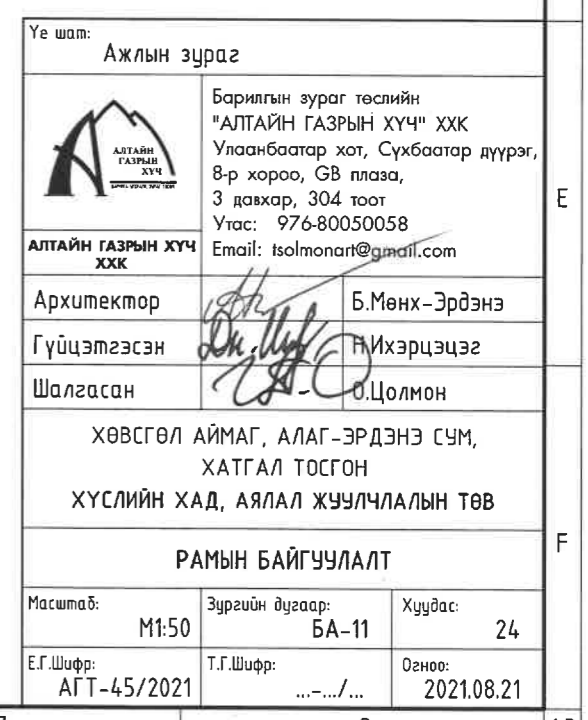 Үе шат:
Ажлын зураг
АЛТАЙН
ГАЗРЫН
ХҮЧ
АЛТАЙН ГАЗРЫН ХҮЧ
ХХК
Барилгын зураг төслийн
"АЛТАЙН ГАЗРЫН ХҮЧ" ХХК
Улаанбаатар хот, Сүхбаатар дүүрэг,
8-р хороо, GB плаза,
3 давхар, 304 тоот
Утас: 976-80050058
Email: tsolmonart@gmail.com
Архитектор Б.Мөнх-Эрдэнэ
Гүйцэтгэсэн Н.Ихэрцэцэг
Шалгасан О.Цолмон
ХӨВСГӨЛ АЙМАГ, АЛАГ-ЭРДЭНЭ СУМ,
ХАТГАЛ ТОСГОН
ХҮСЛИЙН ХАД, АЯЛАЛ ЖУУЛЧЛАЛЫН ТӨВ
РАМЫН БАЙГУУЛАЛТ
Масштаб: Зургийн дугаар: Хуудас:
М1:50 БА-11 24
Е.Г.Шифр: Т.Г.Шифр: Огноо:
АГТ-45/2021 ...-.../... 2021.08.21
E
F